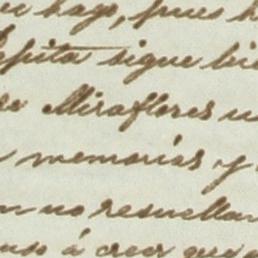 hago, pues
Pepita sigue
Miraflores
memorias y
no resuellan
á creer que